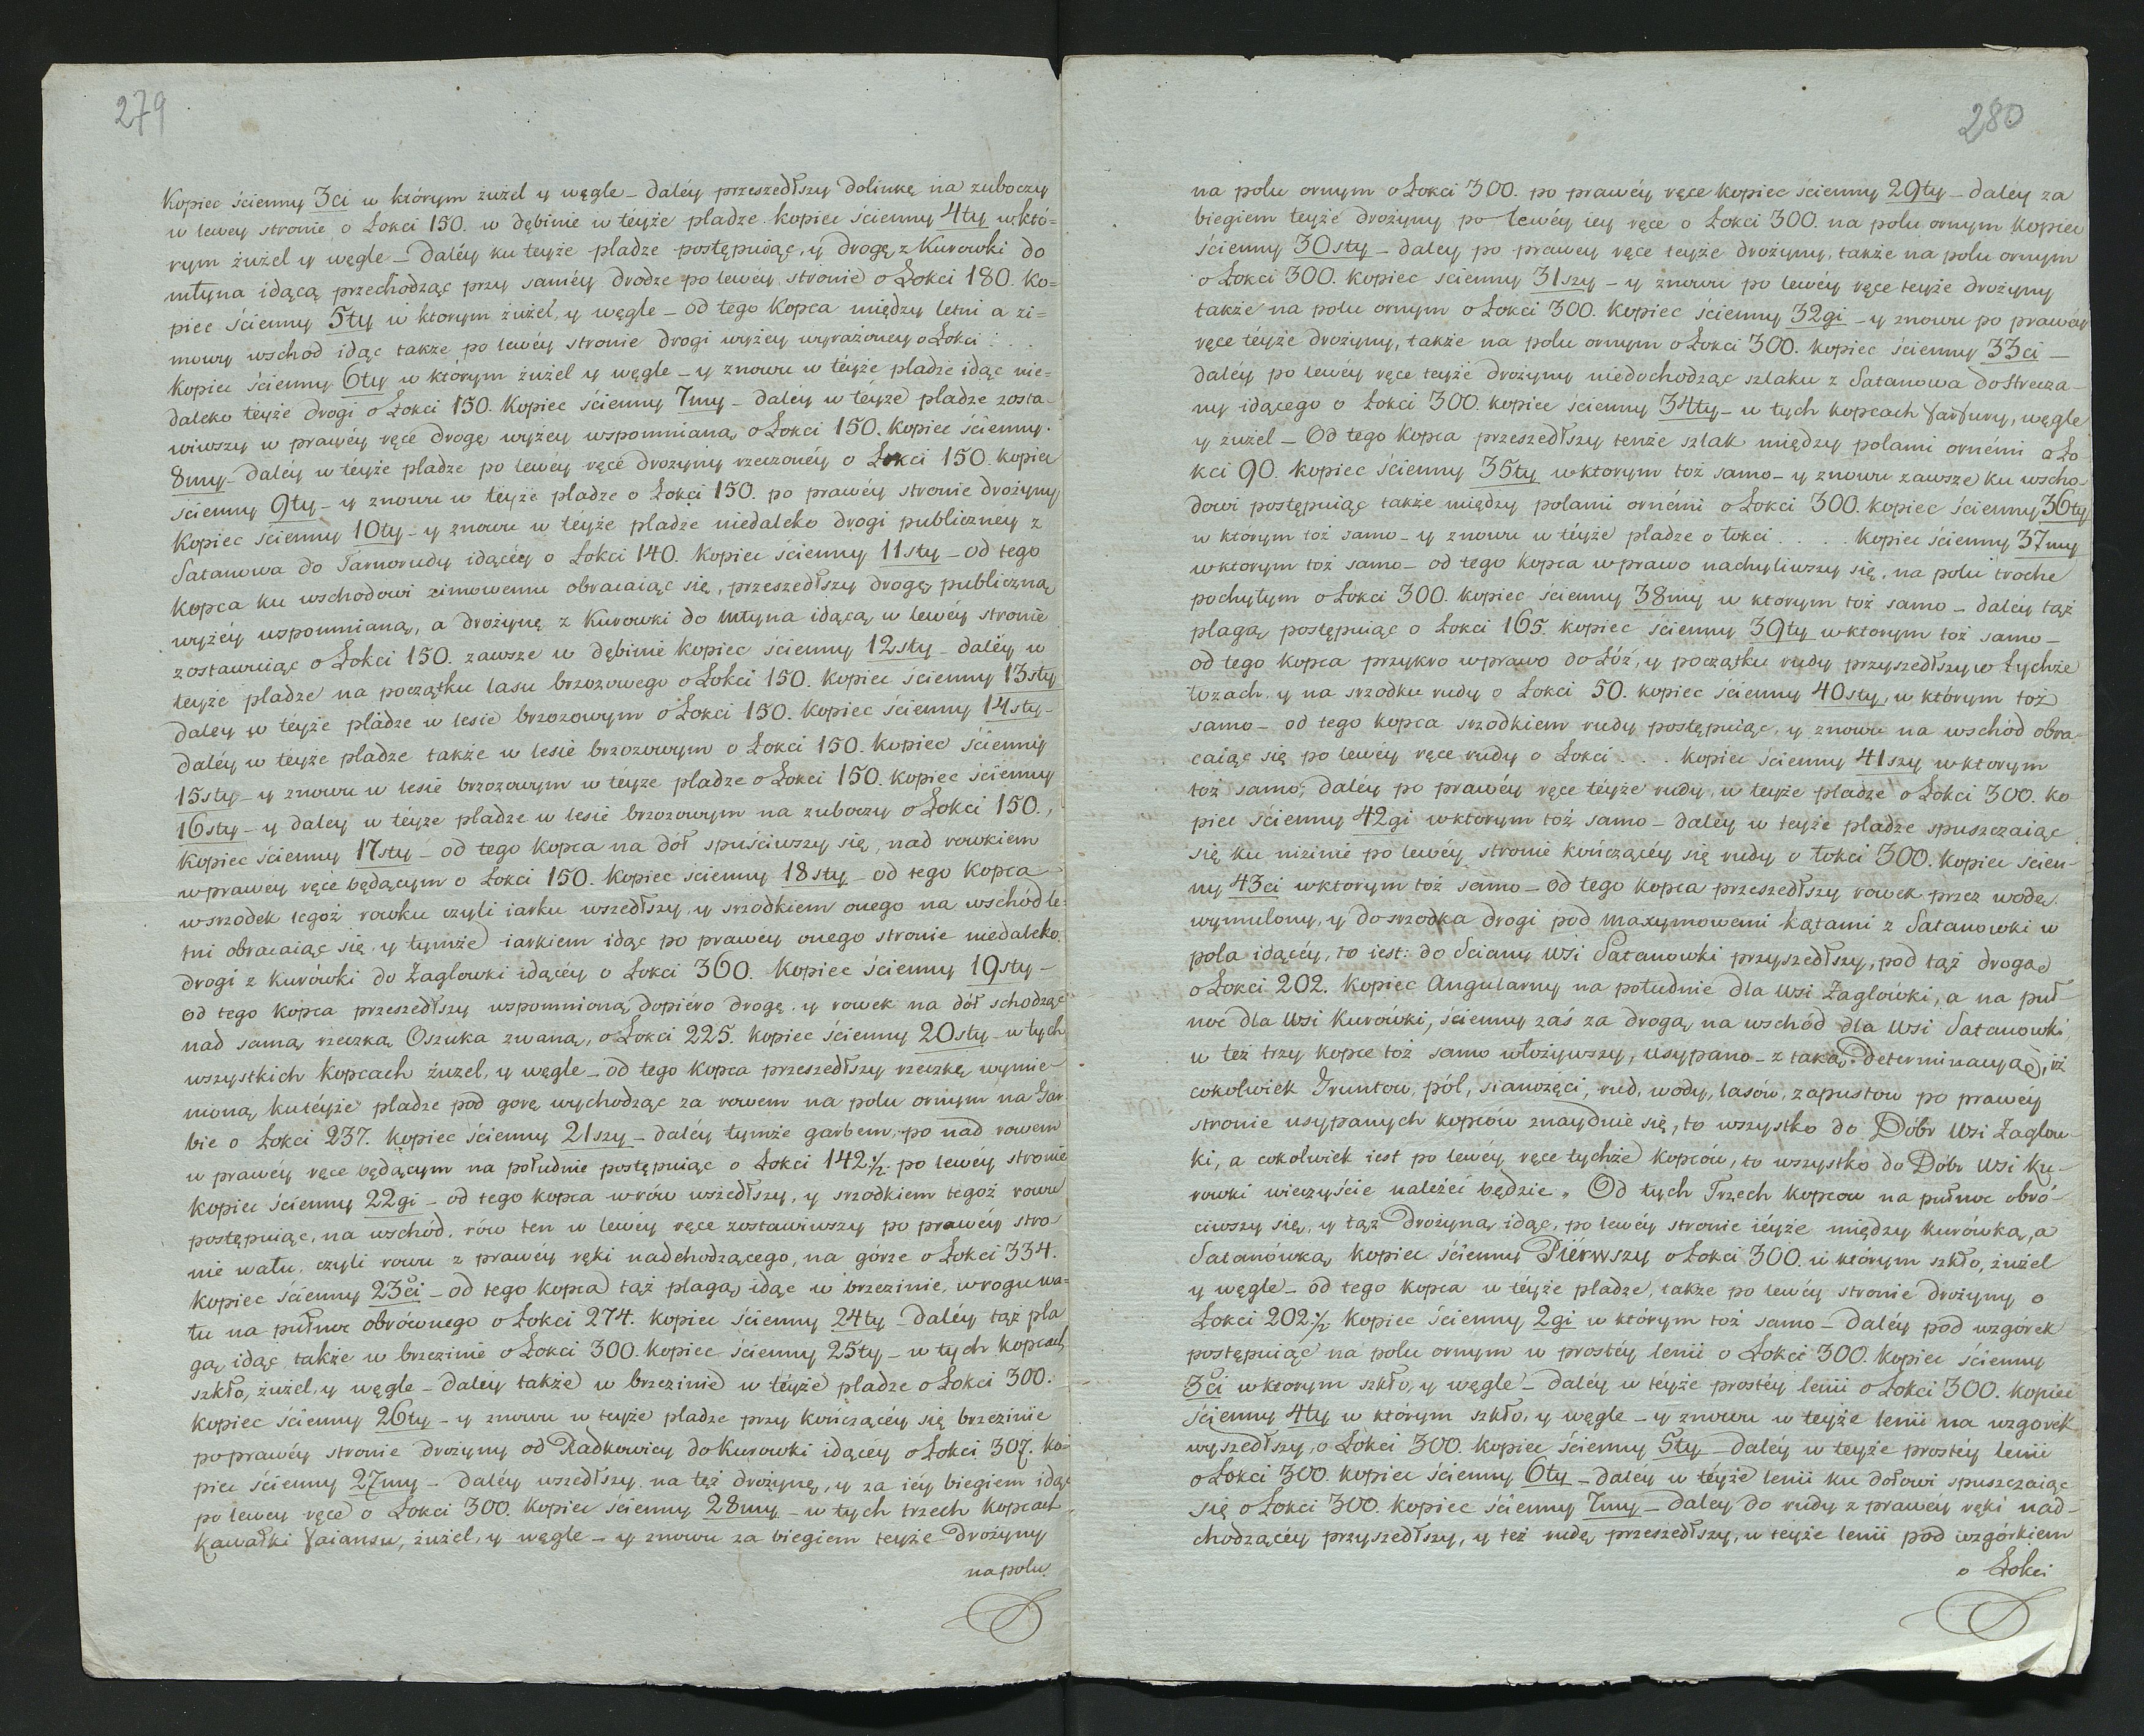 279
Kopiec ścienny 3ci w którym żużel y węgle – daléy przeszedłszy dolinkę na zuboczy
w lewey stronie o Łokci 150. w dębinie w téyże pladze kopiec ścienny 4ty w któ=
rym żużel y węgle – daléy ku teyże pladze postępuiąc, y drogę z Kurowki do
młyna idącą przechodząc przy saméy drodze po lewéy stronie o Łokci 180. Ko=
piec ścienny 5ty w ktorym żużel, y węgle – od tego Kopca między letni a zi=
mowy wschod idąc także po lewéy stronie drogi wyżey wyrażoney o Łokci . . .
Kopiec ścienny 6ty w ktorym żużel y węgle – y znowu w téyże pladze idąc nie=
daleko téyże drogi o Łokci 150. Kopiec ścienny 7my – daléy w téyże pladze zosta=
wiwszy w prawéy ręce drogę wyżey wspomnianą o Łokci 150. Kopiec ścienny.
8my – daléy w téyże pladze po lewéy ręce drożyny rzeczonéy o Łokci 150. kopiec
ścienny 9ty – y znowu w téyże pladze o Łokci 150. po prawéy stronie drożyny
Kopiec ścienny 10ty – y znowu w téyże pladze niedaleko drogi publicznéy z
Satanowa do Tarnorudy idącéy o Łokci 140. Kopiec ścienny 11sty – od tego
Kopca ku wschodowi zimowemu obracaiąc się, przeszedłszy drogę publiczną
wyżéy wspomnianą, a drożynę z Kurowki do Młyna idącą w lewéy stronie
zostawuiąc o Łokci 150. zawsze w dębinie kopiec ścienny 12sty – daléy w
teyże pladze na początku lasu brzozowego o Łokci 150. Kopiec ścienny 13sty
daley w teyże pladze w lesie brzozowym o Łokci 150. Kopiec ścienny 14sty –
daléy w teyże pladze także w lesie brzozowym o Łokci 150. Kopiec ścienny
15sty – y znowu w lesie brzozowym w téyże pladze o Łokci 150. Kopiec ścienny
16sty – y daley w téyże pladze w lesie brzozowym na zuboczy o Łokci 150.,
Kopiec ścienny 17sty – od tego Kopca na dół spuściwszy się, nad rowkiem
w prawey ręce będącym o Łokci 150. Kopiec ścienny 18sty – od tego Kopca
w srzodek tegoż rowku czyli iarku wszedłszy, y srzodkiem onego na wschód le=
tni obracaiąc się, y tymże iarkiem idąc po prawey onego stronie niedaleko
drogi z Kurówki do Zaglowki idącéy o Łokci 360. Kopiec ścienny 19sty –
od tego Kopca przeszedłszy wspomnioną dopiéro drogę, y rowek na dół schodząc
nad samą rzeczką Oszuka zwaną, o Łokci 225. Kopiec ścienny 20sty – w tych
wszystkich Kopcach żużel, y węgle – od tego Kopca przeszedłszy rzeczkę wymie=
nioną ku téyże pladze pod gorę wychodząc za rowem na polu ornym na Gar
bie o Łokci 237. Kopiec ścienny 21szy – daléy tymże garbem, po nad rowem
w prawey ręce będącym na południe postępuiąc o Łokci 142½. po lewey stronie
Kopiec ścienny 22gi – od tego kopca w rów wszedłszy, y srzodkiem tegoż rowu
postępuiąc, na wschód, rów ten w lewéy ręce zostawiwszy po prawéy stro=
nie wału, czyli rowu z prawéy ręki nadchodzącego, na górze o Łokci 334.
Kopiec ścienny 23ci – od tego kopca tąż plagą idąc w brzezinie, w rogu wa=
łu na pułnoc obrównego o Łokci 274. Kopiec ścienny 24ty – daléy tąż pla
gą idąc także w brzezinie o Łokci 300. Kopiec ścienny 25ty – w tych kopcach
szkło, żużel, y węgle – daléy także w brzezinie w téyże pladze o Łokci 300.
Kopiec ścienny 26ty – y znowu w teyże pladze przy kończącéy się brzezinie
po prawéy stronie drożyny od Radkowicy do Kurowki idącéy o Łokci 307. Ko=
piec ścienny 27my – daléy wszedłszy na też drożynę, y za iéy biegiem idąc
po lewey ręce o Łokci 300. Kopiec ścienny 28my – w tych trzech Kopcach
Kawałki faiansu, żużel, y węgle – y znowu za biegiem teyże Drożyny
na polu
280
na polu ornym o Łokci 300. po prawéy ręce Kopiec ścienny 29ty – daley za
biegiem teyże drożyny po lewéy iey ręce o Łokci 300. na polu ornym Kopiec
ścienny 30sty – daley po prawey ręce teyże drożyny, także na polu ornym
o Łokci 300. Kopiec ścienny 31szy – y znowu po lewéy ręce teyże drożyny
także na polu ornym o Łokci 300. Kopiec ścienny 32gi – y znowu po prawéy
ręce téyże drożyny, także na polu ornym o Łokci 300. Kopiec ścienny 33ci –
daley po lewéy ręce teyże drożyny niedochodząc szlaku z Satanowa do Strecza=
ny idącego o Łokci 300. kopiec ścienny 34ty – w tych kopcach farfury, węgle
y żużel – Od tego Kopca przeszedłszy tenże szlak między polami ornémi o Ło=
kci 90. Kopiec ścienny 35ty w ktorym toż samo – y znowu zawsze ku wscho=
dowi postępuiąc także między polami ornémi o Łokci 300. kopiec ścienny 36ty
w ktorym toż samo – y znowu w téyże pladze o łokci . . . . Kopiec ścienny 37my
w ktorym toż samo – od tego kopca w prawo nachyliwszy się, na polu troche
pochyłym o Łokci 300. Kopiec ścienny 38my w ktorym toż samo – daléy tąż
plagą postępuiąc o Łokci 165. Kopiec ścienny 39ty w ktorym toż samo –
od tego kopca przykro w prawo do Łóź, y początku rudy przyszedłszy w tychże
łozach y na srzodku rudy o Łokci 50. Kopiec ścienny 40sty, w którym toż
samo – od tego kopca srzodkiem rudy postępuiąc, y znowu na wschód obra=
caiąc się po lewéy ręce rudy o Łokci . . . Kopiec ścienny 41szy w ktorym
toż samo; daléy po prawéy ręce téyże rudy, w teyże pladze o Łokci 300. Ko
piec ścienny 42gi w ktorym tóż samo – daléy w teyże pladze spuszczaiąc
się ku nizinie po lewéy stronie kończącéy się rudy o łokci 300. Kopiec ścien=
ny 43ci w ktorym toż samo – od tego kopca przeszedłszy rowek przez wodę
wymulony, y do srzodka drogi pod Maxymowemi kątami z Satanowki w
pola idącéy, to iest: do Sciany Wsi Satanowki przyszedłszy, pod tąż drogą
o Łokci 202. Kopiec Angularny na południe dla Wsi Zaglowki, a na puł=
noc dla Wsi Kurowki, ścienny zaś za drogą na wschód dla Wsi Satanowki,
w też trzy kopce toż samo włożywszy, usypano – z taką Determinacyą, iż
cokolwiek Gruntow, pól, sianożęci, rud, wody, lasów, zapustow po prawéy
stronie usypanych kopców znayduie się, to wszystko do Dóbr Wsi Zaglow=
ki, a cokolwiek iest po lewéy ręce tychże kopców, to wszystko do Dóbr Wsi Ku=
rowki wieczyście należéć będzie„ Od tych Trzech Kopcow na pułnoc obró=
ciwszy się, y tąż Drożyną idąc, po lewéy stronie iéyże między Kurówką, a
Satanówką Kopiec ścienny Piérwszy o Łokci 300. w którym szkło, żużel
y węgle – od tego kopca w téyże pladze, także po lewéy stronie drożyny o
Łokci 202½ Kopiec ścienny 2gi w którym toż samo – Daléy pod wzgórek
postępuiąc na polu ornym w prostéy lenii o Łokci 300. Kopiec ścienny
3ci w ktorym szkło, y węgle – Daléy w teyże prostéy lenii o Łokci 300. kopiec
ścienny 4ty w którym szkło, y węgle – y znowu w teyże lenii na wzgorek
wyszedłszy, o Łokci 300. Kopiec ścienny 5ty – Daléy w teyże prostéy lenii
o Łokci 300. kopiec ścienny 6ty – daley w téyże lenii ku dołowi spuszczaiąc
się o Łokci 300. Kopiec ścienny 7my – daley do rudy z prawéy ręki nad=
chodzącéy przyszedłszy, y też rudę przeszedłszy, w teyże lenii pod wzgórkiem
o Łokci